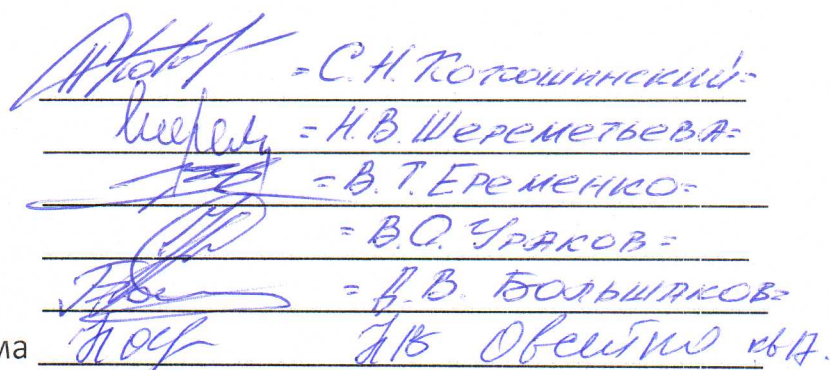 =С.Н. Кокошинский=
=Н.В. Шереметьева=
=В.Т. Еременко=
=В.О. Ураков=
=Д.В. Большаков=
ма НВ кв 17.